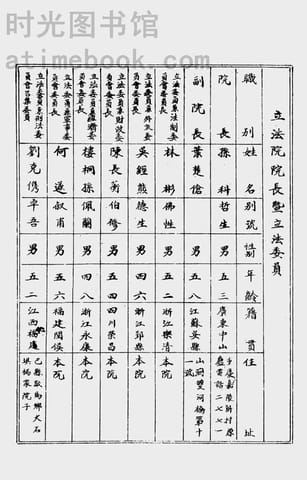 时光图书馆
atimebook.com
立法院院長暨立法委員
職別 姓名 別號 性別 年齡 籍貫 住址
院長 孫科 哲生 男 五三 廣東中山
副院長 葉楚傖 男 江蘇吳縣 山洞雙河橋第十一號
立法委員兼法制委員會委員長 林彬 佛性 男 五二 浙江樂清 本院
立法委員兼外交委員會委員長 吳經熊 德生 男 四六 浙江鄞縣 本院
立法委員兼財政委員會委員長 陳長蘅 伯修 男 五四 四川榮昌 本院
立法委員兼經濟委員會委員長 樓桐孫 佩蘭 男 四八 浙江永康 本院
立法委員兼軍事委員會委員長 何遂 叔甫 男 五六 福建閩侯 本院
劉克儁 男 五二 江西